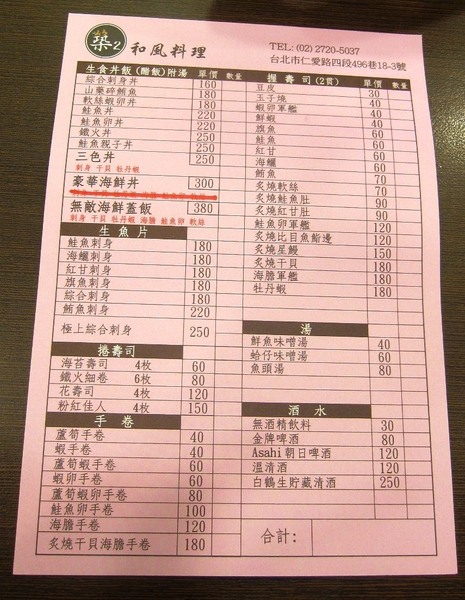 築2 和風料理
TEL: (02) 2720-5037
台北市仁愛路四段496巷18-3號
生食丼飯(醋飯)附湯 單價 數量
綜合刺身丼 160
山藥碎鮪魚 180
軟絲蝦卵丼 180
鮭魚丼 220
鮭魚卵丼 220
鐵火丼 250
鮭魚親子丼 250
三色丼 250
刺身 干貝 牡丹蝦
豪華海鮮丼 300
無敵海鮮蓋飯 380
刺身 干貝 牡丹蝦 海膽 鮭魚卵 軟絲
生魚片
鮭魚刺身 180
海鱺刺身 180
紅甘刺身 180
旗魚刺身 180
綜合刺身 180
鮪魚刺身 220
極上綜合刺身 250
捲壽司
海苔壽司 4枚 60
鐵火細卷 6枚 80
花壽司 4枚 120
粉紅佳人 4枚 150
手卷
蘆筍手卷 40
蝦手卷 40
蘆筍蝦手卷 60
蝦卵手卷 60
蘆筍蝦卵手卷 80
鮭魚卵手卷 100
海膽手卷 120
炙燒干貝海膽手卷 180
握壽司(2貫) 單價 數量
豆皮 30
玉子燒 30
蝦卵軍艦 40
鮮蝦 40
旗魚 60
鮭魚 60
紅甘 60
海鱺 60
鮪魚 70
炙燒軟絲 70
炙燒鮭魚肚 90
炙燒紅甘肚 90
鮭魚卵軍艦 120
炙燒比目魚鰭邊 120
炙燒星鰻 150
炙燒干貝 180
海膽軍艦 180
牡丹蝦 180
湯
鮮魚味噌湯 40
蛤仔味噌湯 60
魚頭湯 80
酒水
無酒精飲料 30
金牌啤酒 80
Asahi朝日啤酒 120
溫清酒 120
白鶴生貯藏清酒 250
合計: